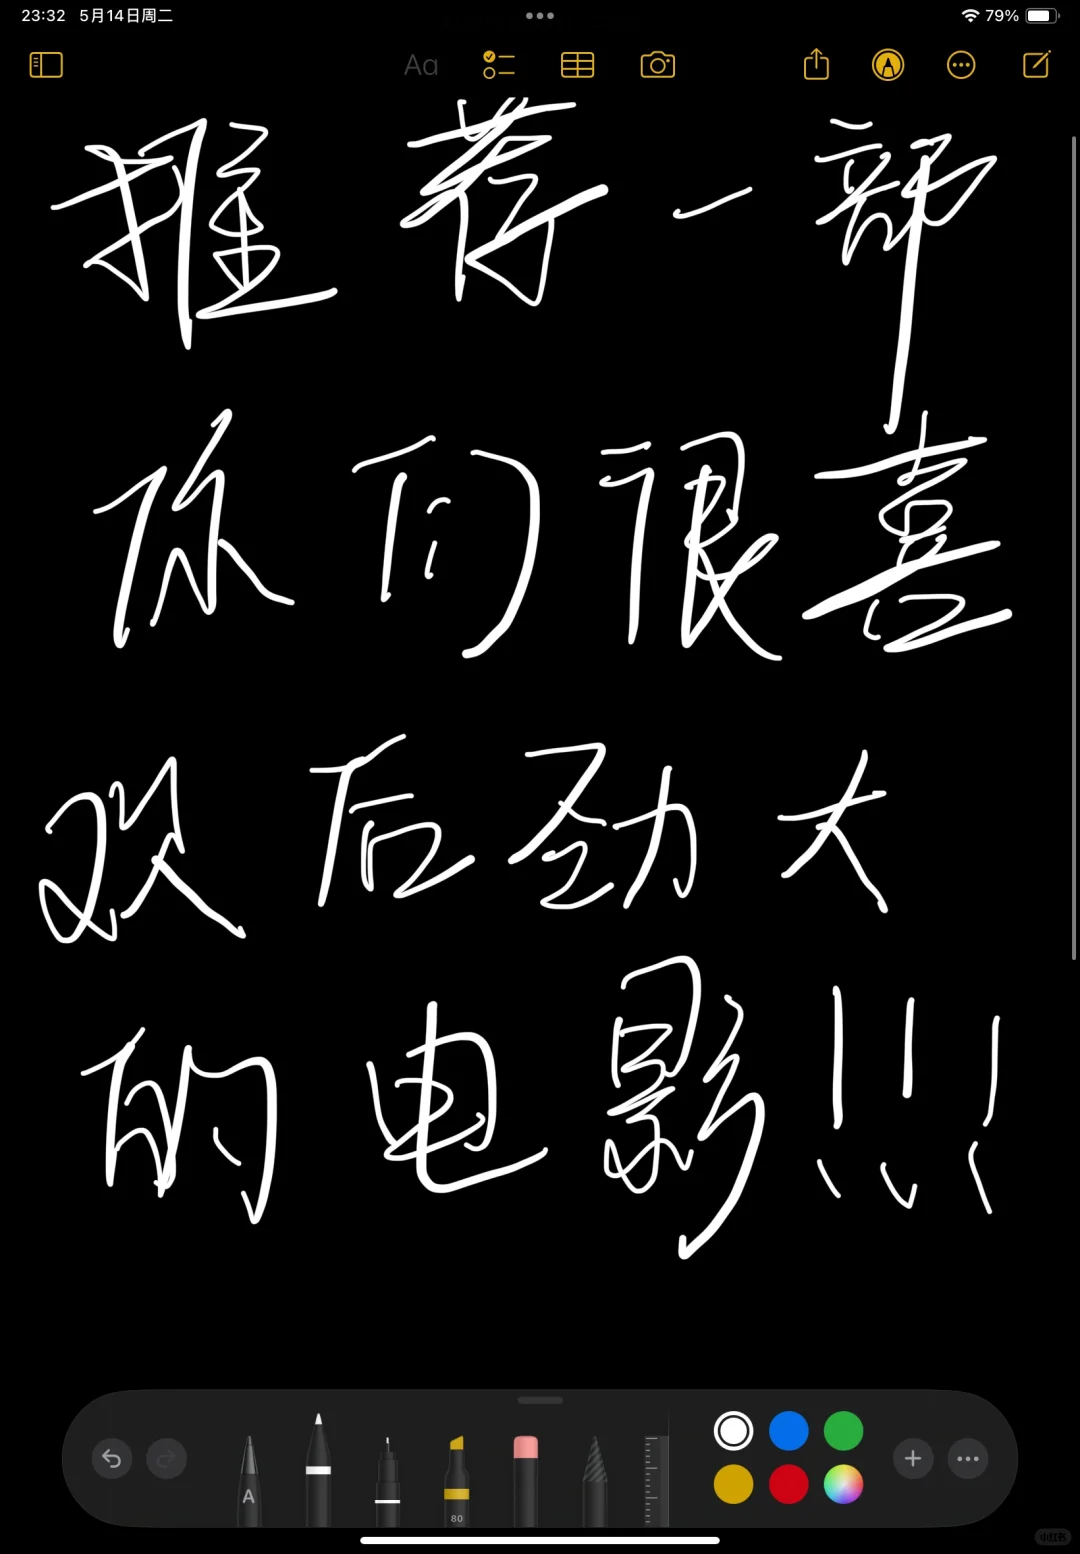 23:32 5月14日周二 79%
Aa
推荐一部
你们很喜
欢后劲大
的电影!!!
A
80
小红书